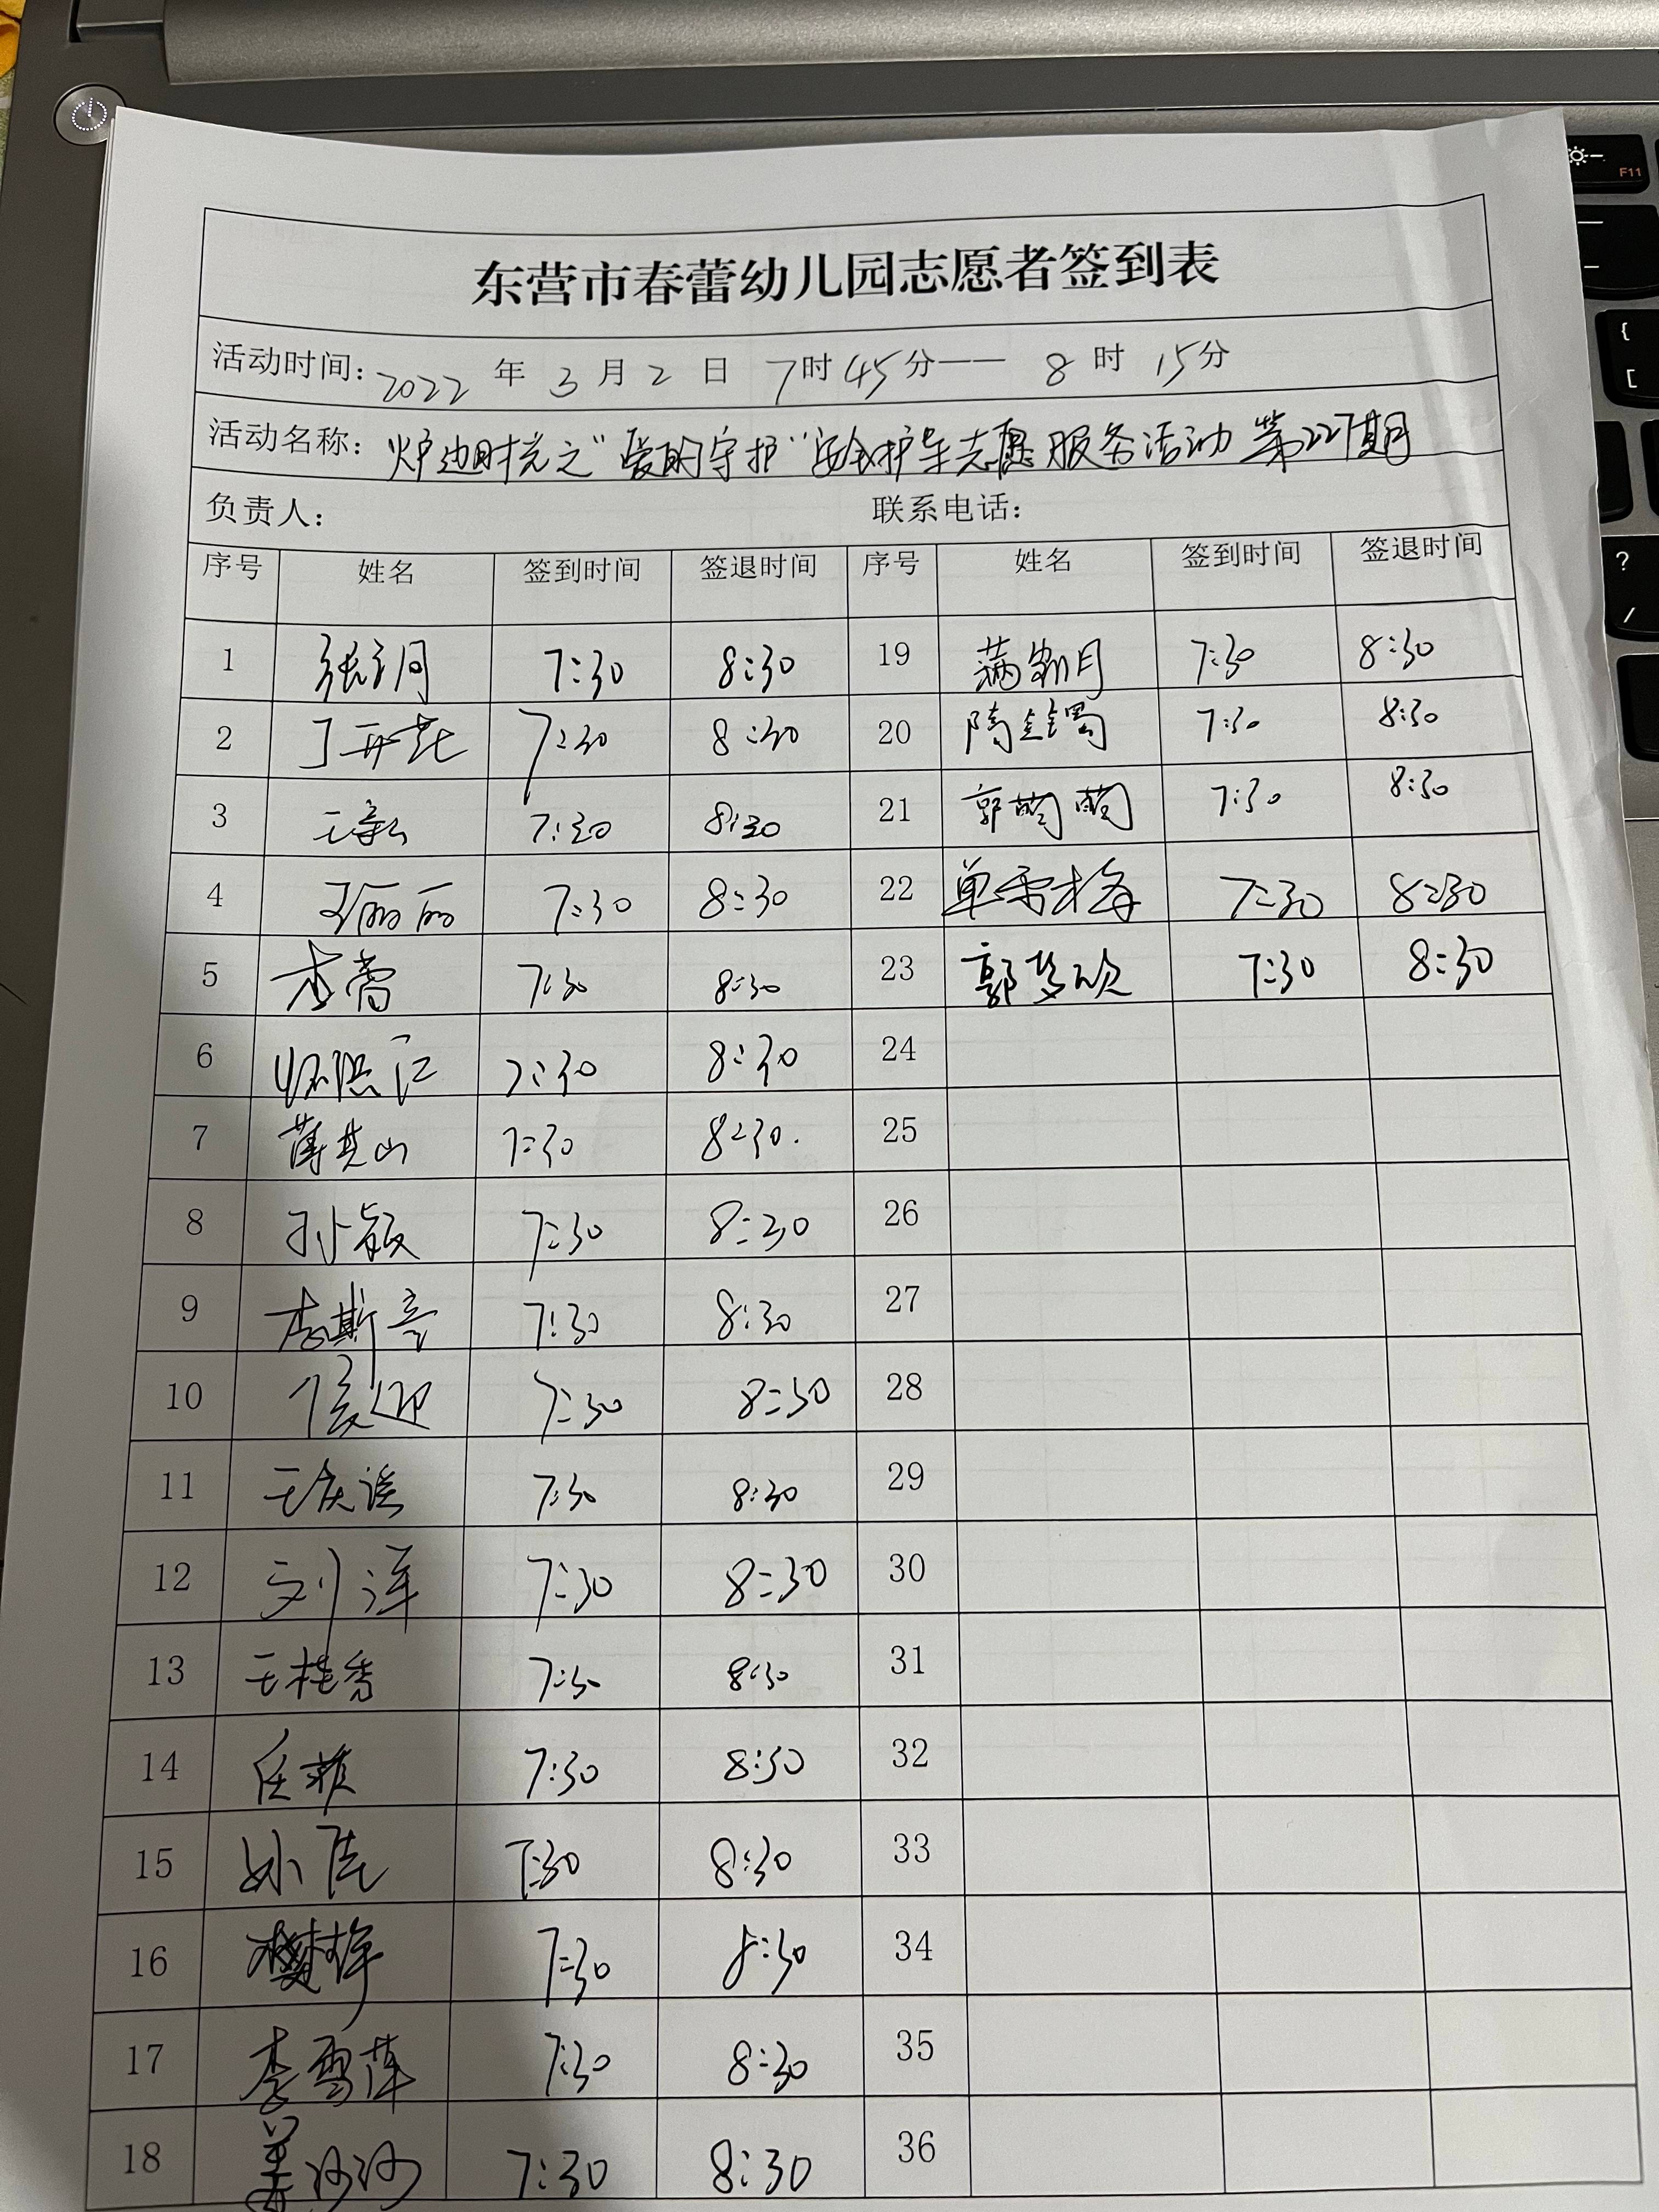 东营市春蕾幼儿园志愿者签到表
活动时间：2022 年 3 月 2 日 7时45分—— 8 时 15分
活动名称：炉边时光之"爱的守护"安全护学志愿服务活动 第227期
负责人： 联系电话：
序号 姓名 签到时间 签退时间 序号 姓名 签到时间 签退时间
1 7:30 8:30 19 满新月 7:30 8:30
2 7:30 8:30 20 隋 7:30 8:30
3 7:30 8:30 21 郭萌萌 7:30 8:30
4 丽丽 7:30 8:30 22 单雪梅 7:30 8:30
5 李蕾 7:30 8:30 23 郭梦欣 7:30 8:30
6 7:30 8:30 24
7 薄其山 7:30 8:30. 25
8 孙颖 7:30 8:30 26
9 李斯 7:30 8:30 27
10 侯迎 7:30 8:30 28
11 王庆 7:30 8:30 29
12 刘洋 7:30 8:30 30
13 王桂香 7:30 8:30 31
14 任菲 7:30 8:30 32
15 7:30 8:30 33
16 樊梓 7:30 8:30 34
17 李雪萍 7:30 8:30 35
18 姜沙沙 7:30 8:30 36
F11
{
[
?
/